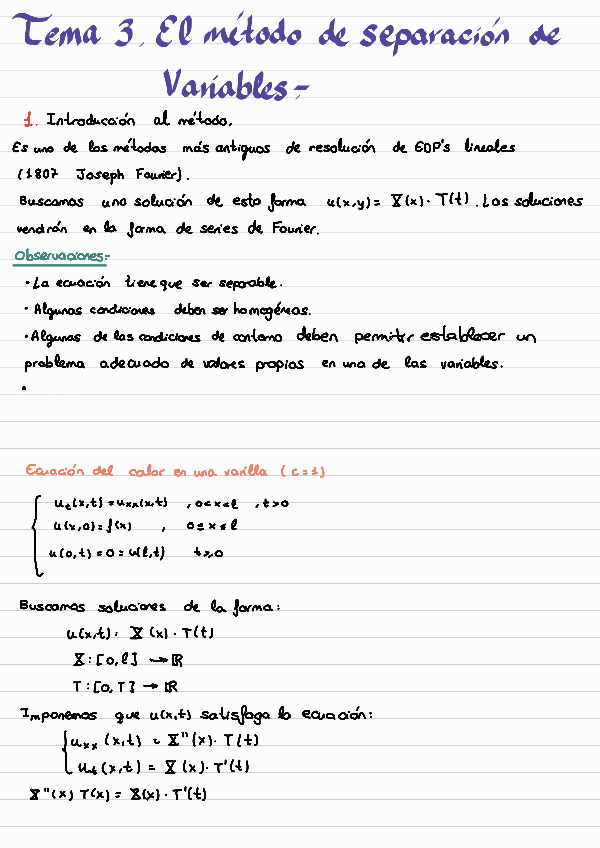 Tema 3. El método de separación de
Variables:-
1. Introducción al método.
Es uno de los métodos más antiguos de resolución de EDP's lineales
(1807 Joseph Fourier).
Buscamos una solución de esta forma u(x,y) = X(x)·T(t). Las soluciones
vendrán en la forma de series de Fourier.
Observaciones:-
· La ecuación tiene que ser separable.
· Algunas condiciones deben ser homogéneas.
· Algunas de las condiciones de contorno deben permitir establecer un
problema adecuado de valores propios en una de las variables.
·
Ecuación del calor en una varilla (c=1)
u_t(x,t) = u_xx(x,t) , 0<x<l , t>0
u(x,0) = f(x) , 0≤x≤l
u(0,t) = 0 = u(l,t) t≥0
Buscamos soluciones de la forma:
u(x,t) = X(x)·T(t)
X: [0,l] → ℝ
T: [0,T] → ℝ
Imponemos que u(x,t) satisfaga la ecuación:
u_xx(x,t) = X''(x)·T(t)
u_t(x,t) = X(x)·T'(t)
X''(x) T(x) = X(x)·T'(t)